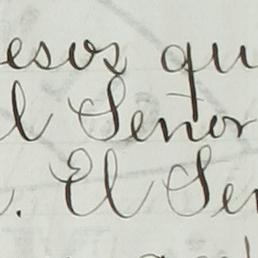 esos qu
l Señor
. El Se